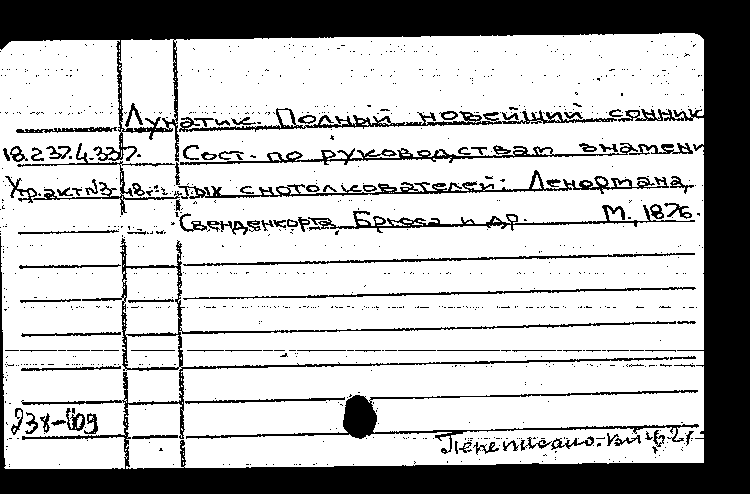 Лунатик. Полный новейший сонник
18.237.4.337. Сост. по руководствам знамени
Утр. акт №3-48г. тых снотолкователей: Ленормана,
Сведенкорга, Брюса и др. М., 1876.
238-
Переписано.